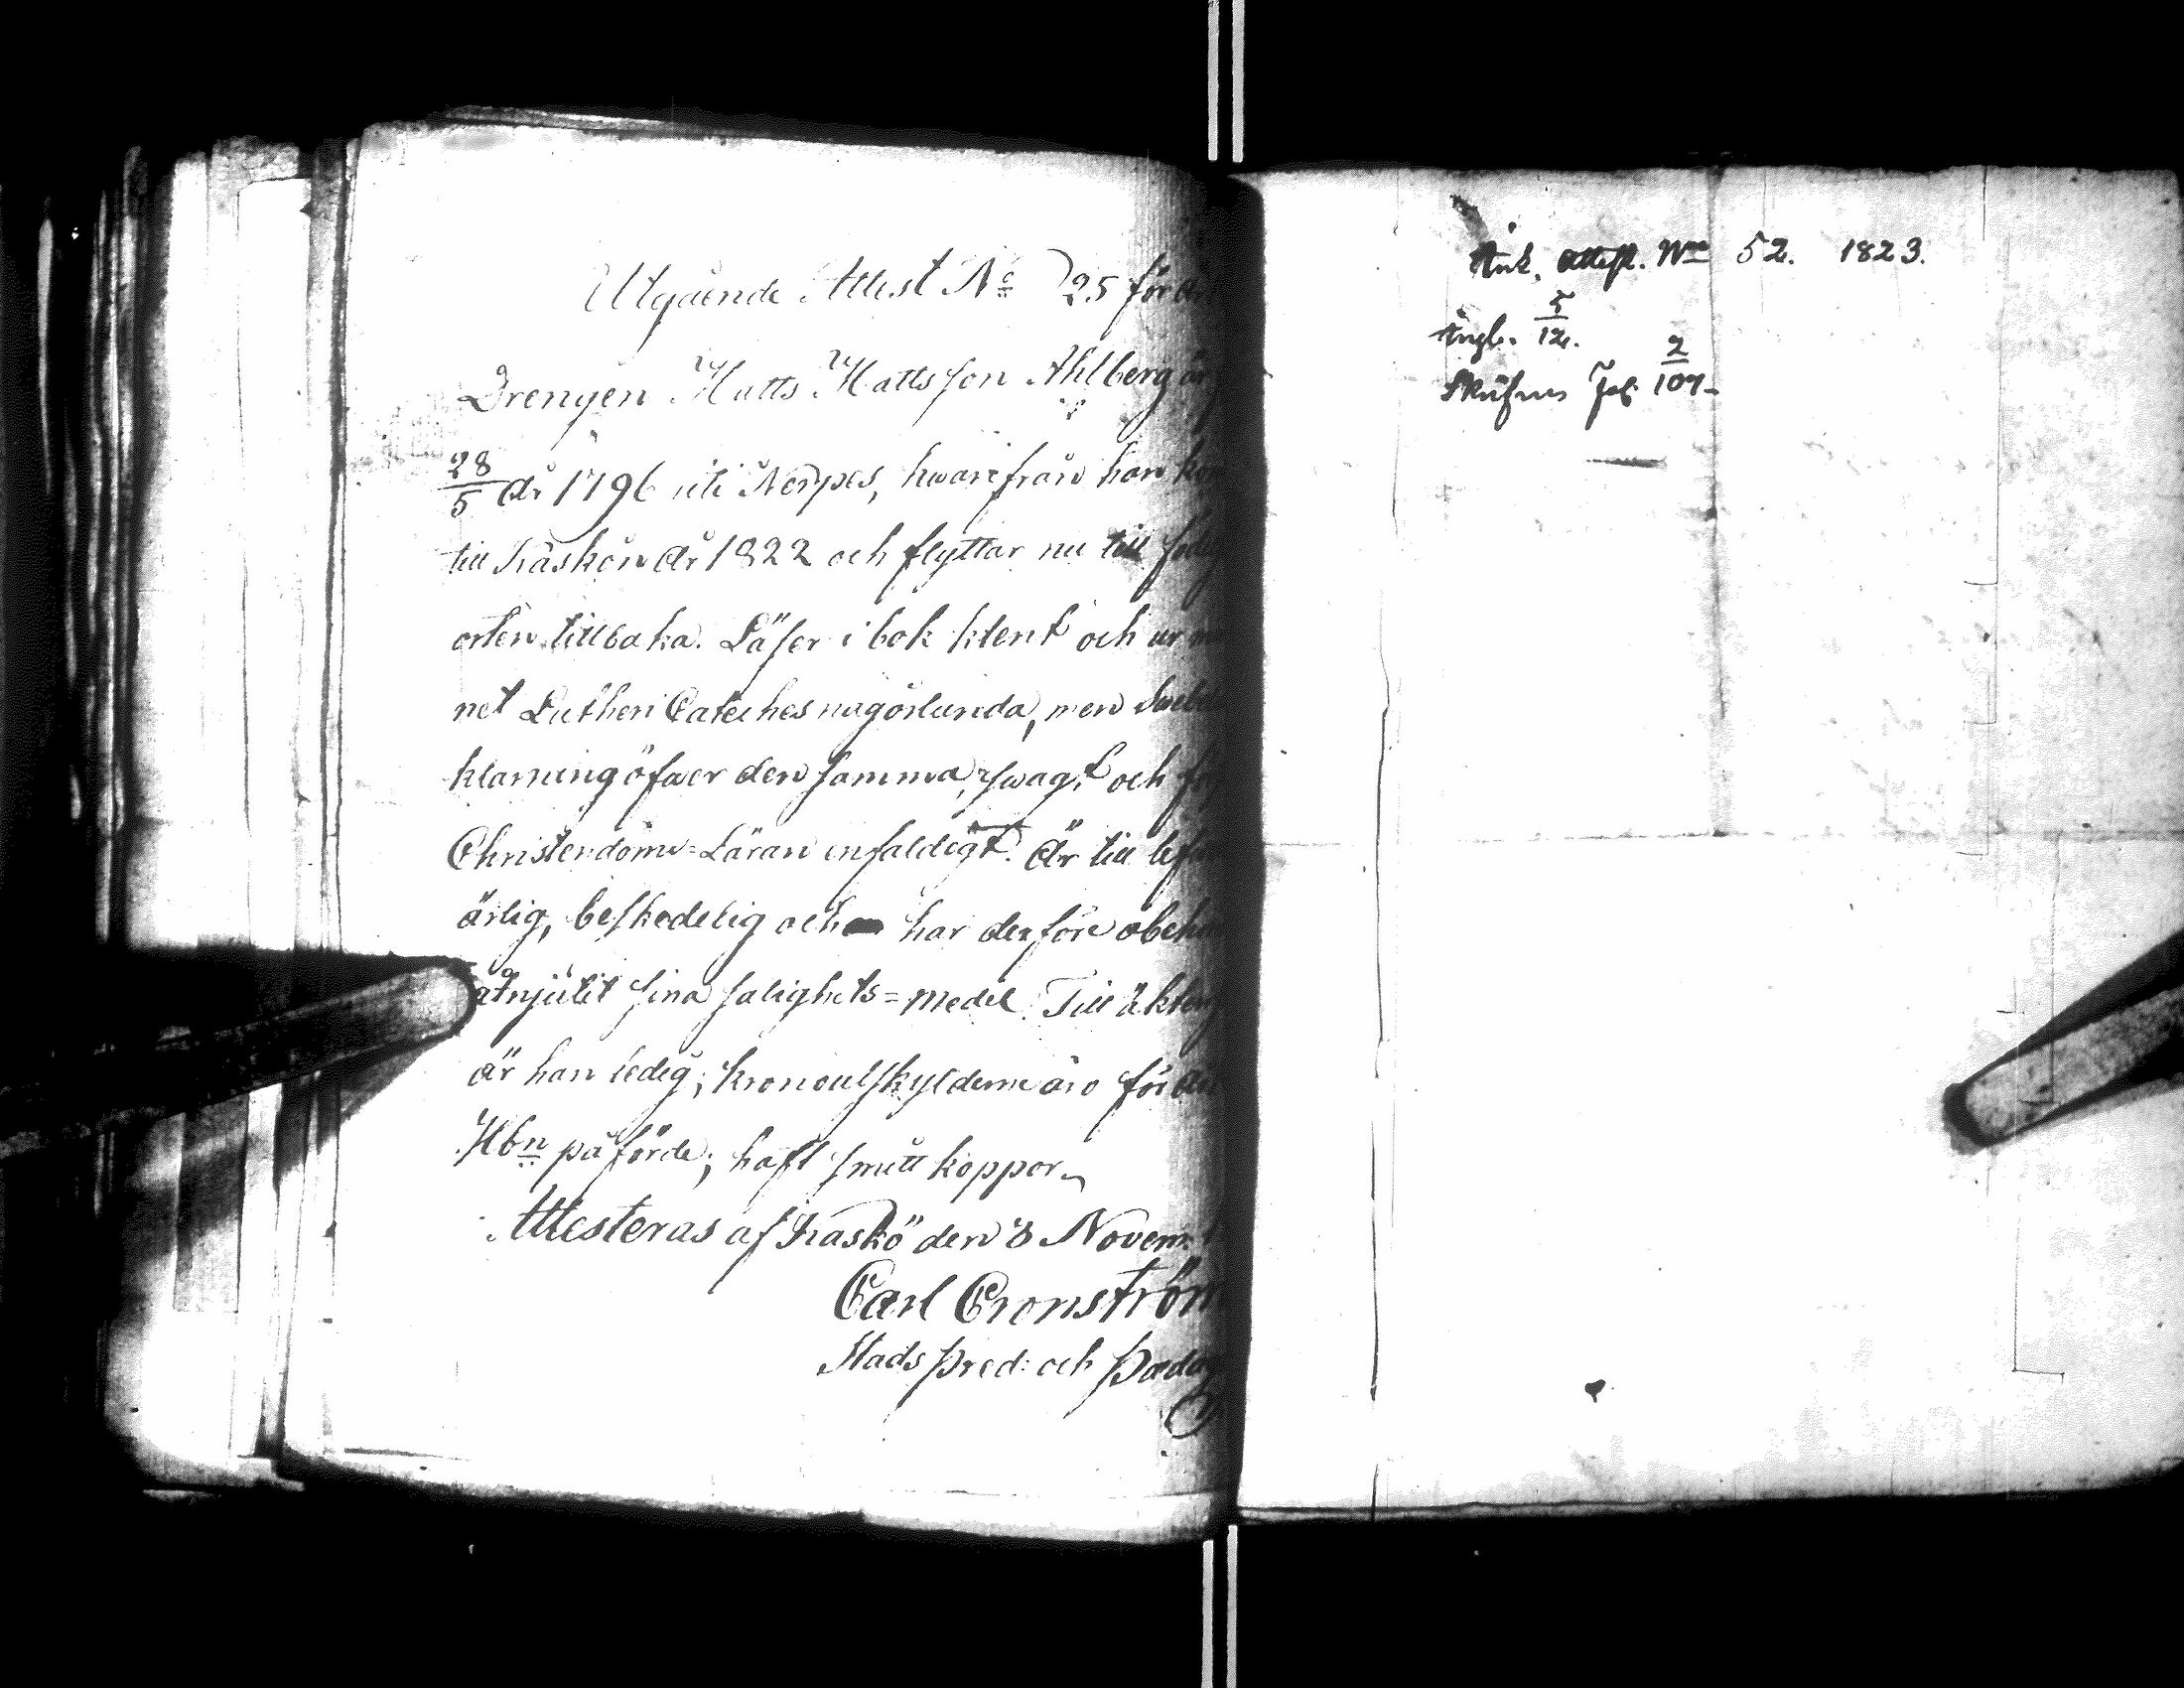 Utgående Attest No 25 för år
Drengen Matts Mattsson Ahlberg är
28/5 År 1796 uti Nerpes, hwarifrån han kom
till Kaskön År 1822 och flyttar nu till föde
orten tillbaka. Läser i bok klent och ur min
net Lutheri Cateches någorlunda, men Svebel
klarning öfwer den samma, swagt och
Christendoms=Läran enfaldigt. Är till lef
ärlig, beskedelig och har derföre obehin
åtnjutit sina salighets=medel. Till äkten
är han ledig; kronoutskylderne äro för
Mbn påförde; haft smitt koppor
Attesteras af Kaskö den 8 Novem
Carl Cronström
Stads pred: och Pædag
Ank. Attest. No 52. 1823.
Angl. 5/12.
Fol. 2/107